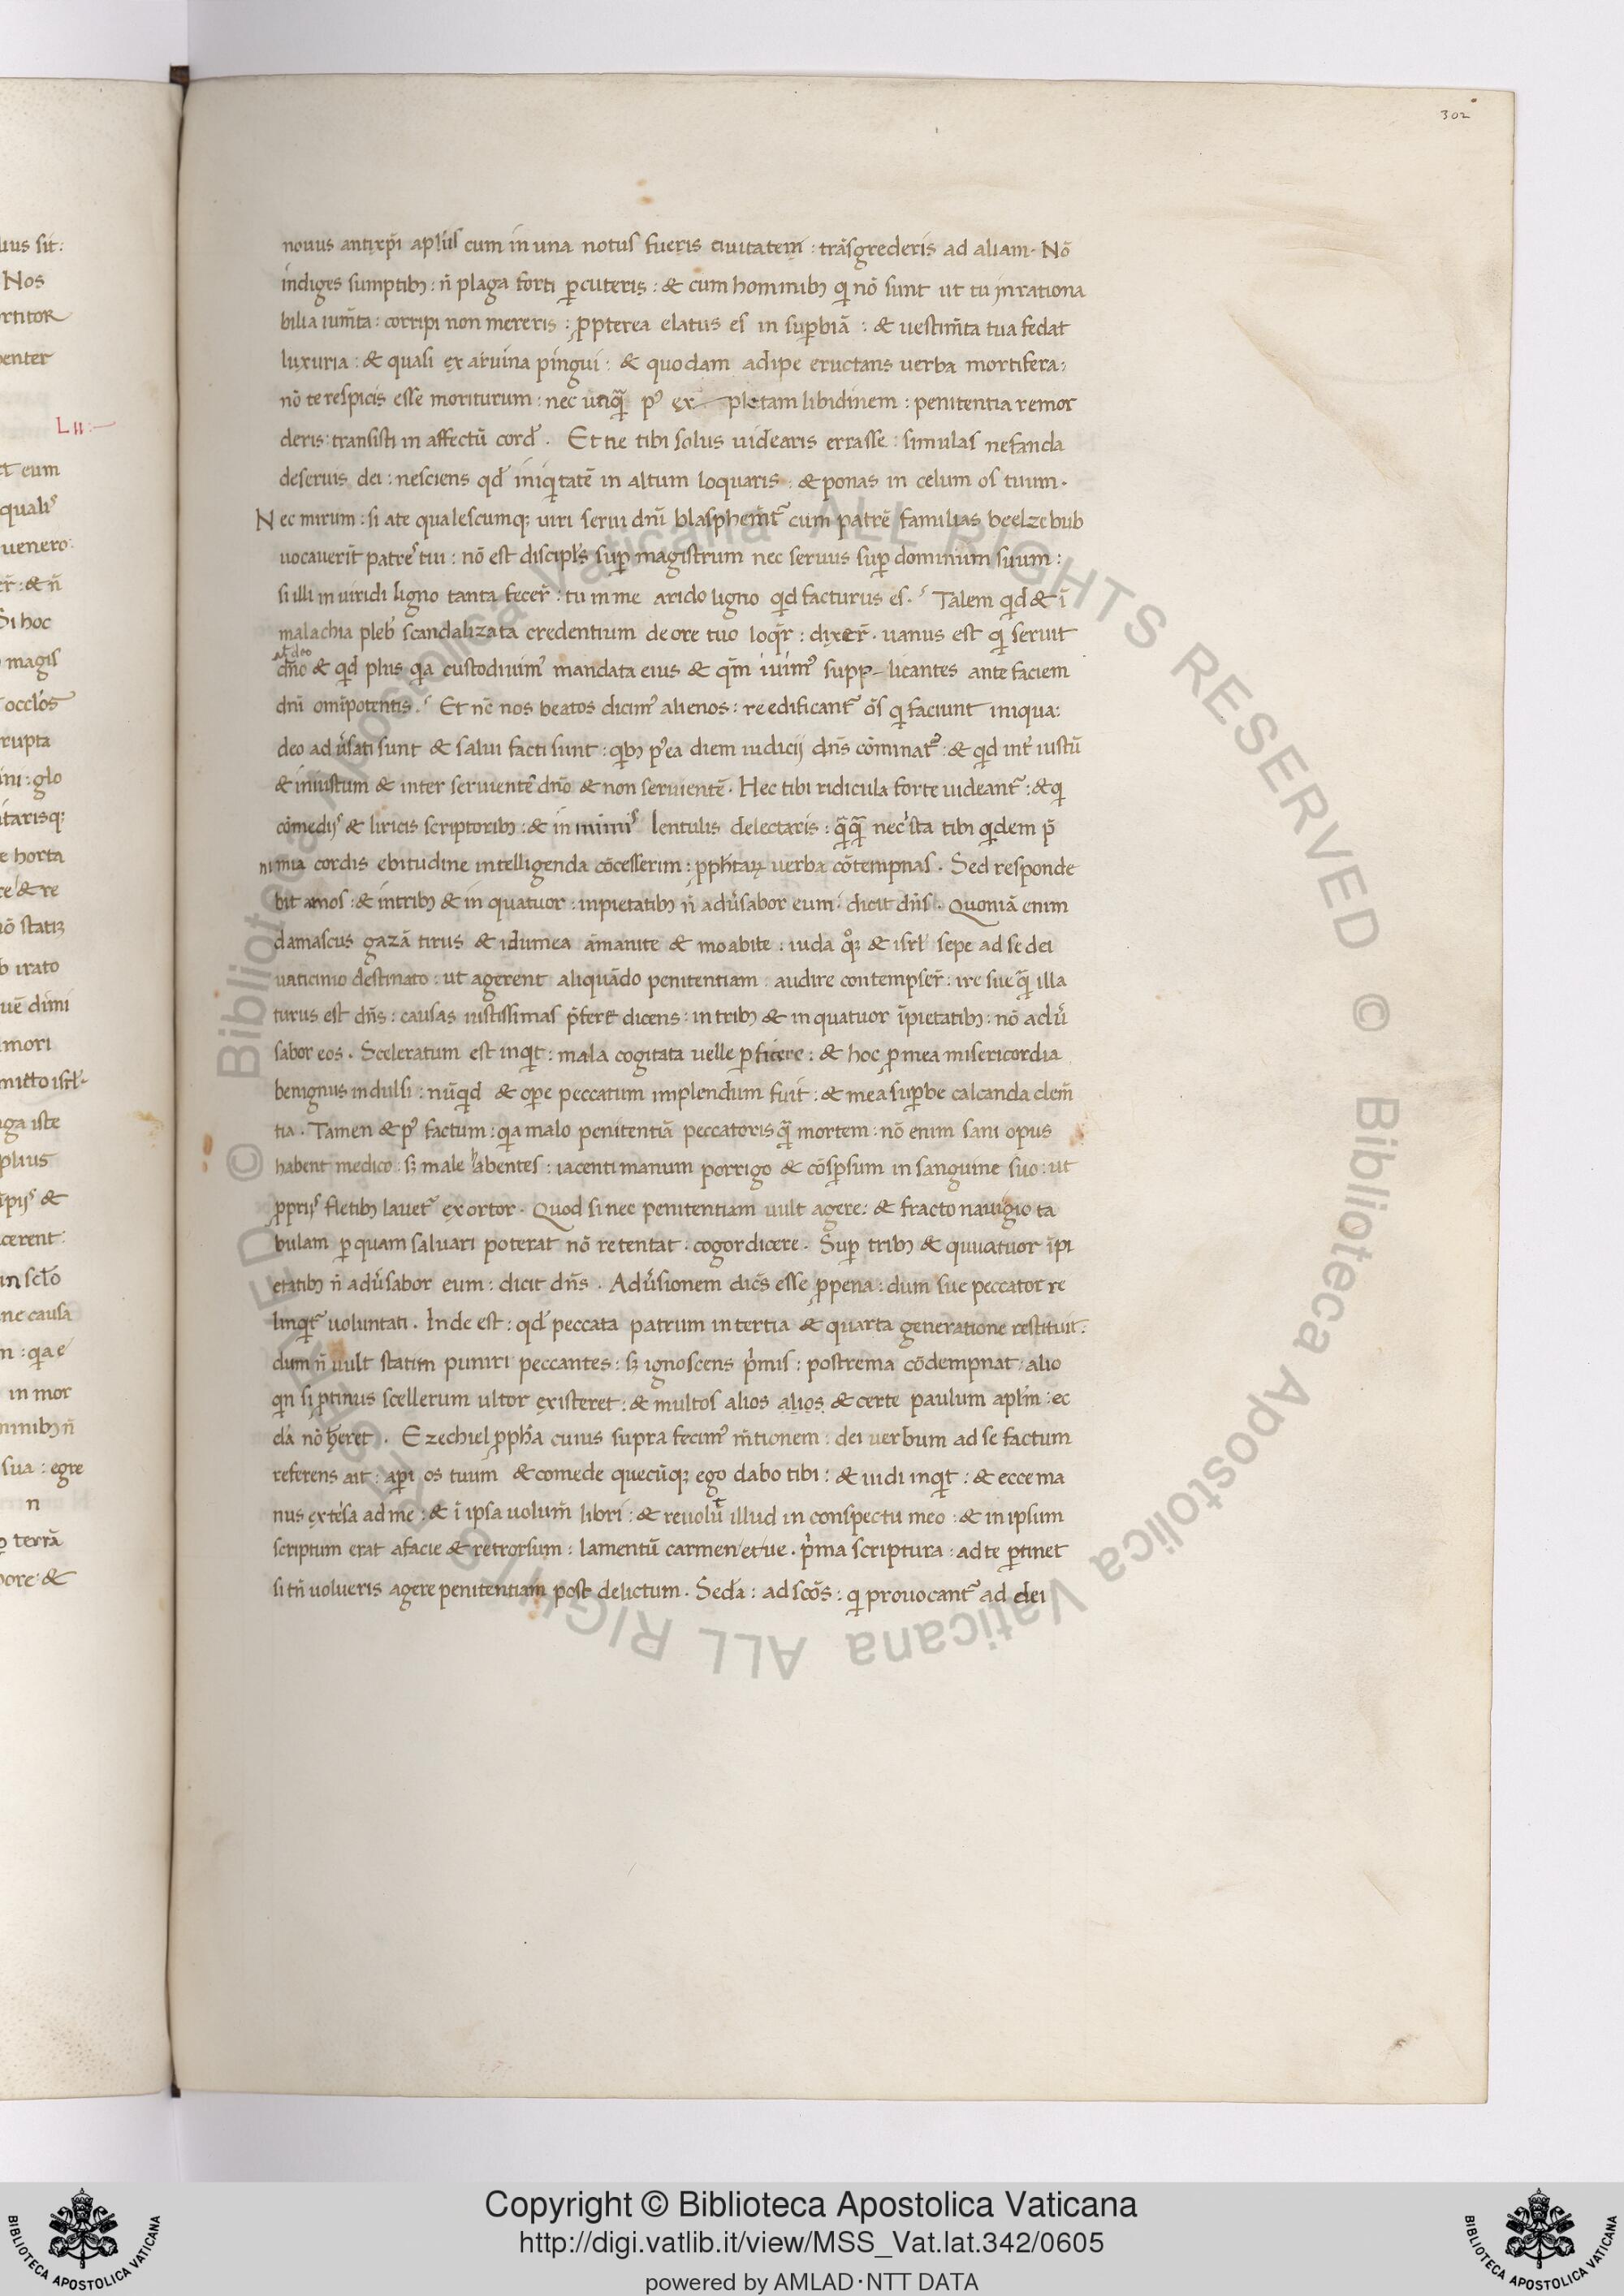 302
nouus antixp̄i apl'us cum in una notus fueris ciuitatem : trāsgrederis ad aliam. Nō
indiges sumptibꝫ : n̄ plaga forti ꝑcuteris : & cum hominibꝫ qi nō sunt ut tu inrationa
bilia ium̄ta : corripi non mereris : ꝓpterea elatus es in suꝑbiā : & uestim̄ta tua fedat
luxuria : & quasi ex aruina pingui : & quodam adipe eructans uerba mortifera :
nō te respicis esse moriturum : nec unq̄ p' ex pletam libidinem : penitentia remor
deris : transisti in affectū cord'. Et ne tibi solus uidearis errasse : simulas nefanda
deseruis dei : nesciens qd' iniqitatē in altum loquaris : & ponas in celum os tuum.
Nec mirum : si a te qualescumqꝫ uiri serui dn̄i blasphem̄t' cum patrē familias beelzebub
uocauerīt patres tui : nō est discipl's suꝑ magistrum nec seruus suꝑ dominum suum :
si illi in uiridi ligno tanta fecer̄ : tu in me arido ligno qd facturus es. Talem qd & ī
malachia pleb' scandalizata credentium de ore tuo loqr̄ : dixer̄. uanus est qi seruit
at deo
dn̄o & qd plus qa custodiuim' mandata eius & qm̄ iuim' supp-licantes ante faciem
dn̄i omīpotentis. Et nc̄ nos beatos dicim' alienos : reedificant' ōs qi faciunt iniqua :
deo adu'sati sunt & salui facti sunt : qibꝫ p'ea diem iudicij dn̄s cōminat' : & qd int' iustū
& iniustum & inter seruientē dn̄o & non seruientē. Hec tibi ridicula forte uideant' : & qi
cōmedijs & liricis scriptoribꝫ : & in mimis lentulis delectaris : q̄q̄ nec ista tibi qidem p̄
nimia cordis ebitudine intelligenda cōcesserim : ꝓph'taꝝ uerba cōtempnas. Sed responde
bit amos : & in tribꝫ & in quatuor : inpietatibꝫ n̄ adu'sabor eum : dicit dn̄s. Quoniā enim
damascus gazā tirus & idumea āmanite & moabite : iuda qꝫ & isrl' sepe ad se dei
uaticinio destinato : ut agerent aliquādo penitentiam : audire contempser̄ : ire sue q̄ illa
turus est dn̄s : causas iustissimas p̄fert dicens : in tribꝫ & in quatuor īpietatibꝫ : nō adu'
sabor eos. Sceleratum est inqt : mala cogitata uelle ꝑficere : & hoc ꝓ mea misericordia
benignus indulsi : nūqd & oꝑe peccatum implendum fuit : & mea suꝑbe calcanda clem̄
tia. Tamen & p' factum : qa malo penitentiā peccatoris q̄ mortem : nō enim sani opus
habent medico : sꝫ male habentes : iacenti manum porrigo & cōsꝑsum in sanguine suo : ut
ꝓprijs fletibꝫ lauet' exortor. Quod si nec penitentiam uult agere : & fracto nauigio ta
bulam ꝑ quam saluari poterat nō retentat : cogor dicere. Suꝑ tribꝫ & quuatuor īpi
etatibꝫ n̄ adu'sabor eum : dicit dn̄s. Adu'sionem dic̄s esse ꝓ pena : dum sue peccator re
linqit' uoluntati. Inde est : qd' peccata patrum in tertia & quarta generatione restituit :
dum n̄ uult statim puniri peccantes : sꝫ ignoscens p'mis : postrema cōdempnat : alio
qin si ꝓtinus scellerum ultor existeret : & multos alios alios & certe paulum apl'm : ec
cl'a nō h'eret. Ezechiel ꝓph'a cuius supra fecim' m̄tionem : dei uerbum ad se factum
referens ait : aꝑi os tuum & comede quecūqꝫ ego dabo tibi : & uidi inqt : & ecce ma
nus extēsa ad me : & ī ipsa uolum̄ libri : & reuolūt illud in conspectu meo : & in ipsum
scriptum erat a facie & retrorsum : lamentū carmen et ue. p'ma scriptura : ad te ꝑtinet
si tn̄ uolueris agere penitentiam post delictum. Sed'a : ad scōs : qi prouocant' ad dei
Copyright © Biblioteca Apostolica Vaticana
http://digi.vatlib.it/view/MSS_Vat.lat.342/0605
powered by AMLAD·NTT DATA